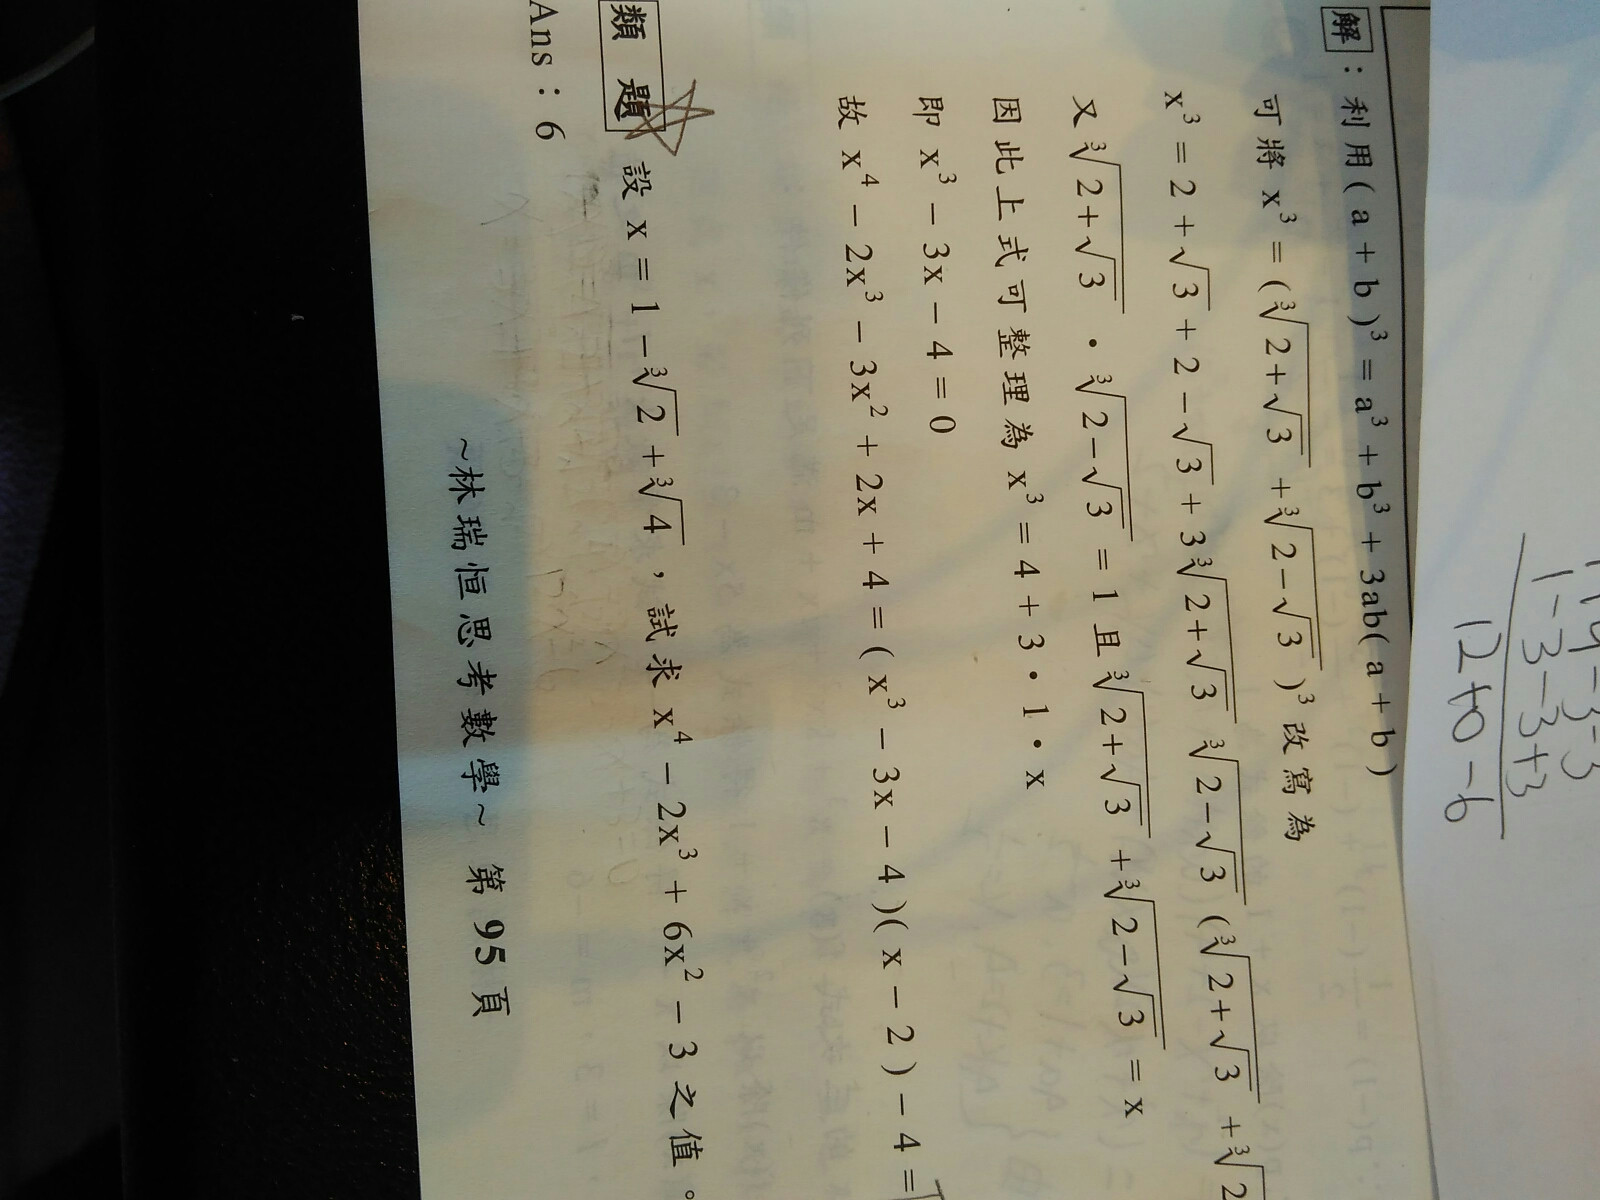 解：利用(a+b)³=a³+b³+3ab(a+b)
可將 x³=(∛(2+√3)+∛(2−√3))³改寫為
x³=2+√3+2−√3+3∛(2+√3) ∛(2−√3)(∛(2+√3)+∛2
又∛(2+√3)·∛(2−√3)=1且∛(2+√3)+∛(2−√3)=x
因此上式可整理為x³=4+3·1·x
即 x³−3x−4=0
故 x⁴−2x³−3x²+2x+4=(x³−3x−4)(x−2)−4=
類題 設 x=1−∛2+∛4，試求x⁴−2x³+6x²−3之值。
Ans：6
~林瑞恒思考數學~ 第95頁
1-3-3+3
12+0-6